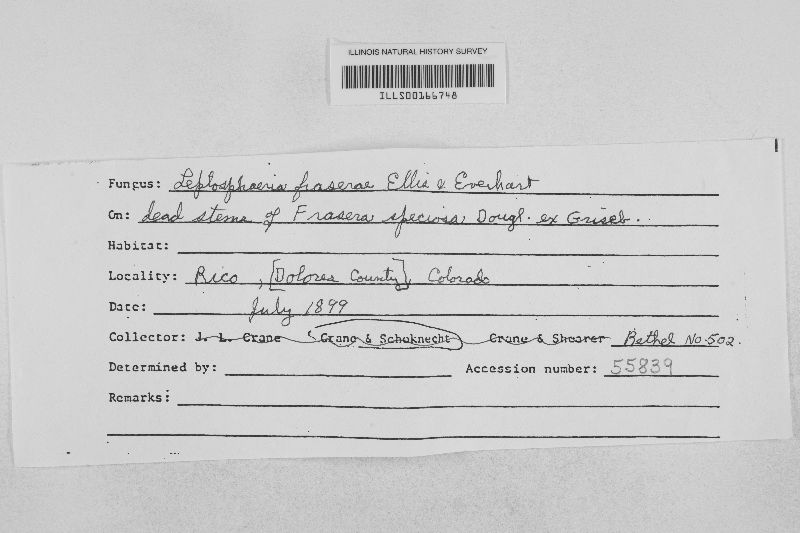 ILLINOIS NATURAL HISTORY SURVEY
ILLS00166748
Fungus: Leptosphaeria fraserae Ellis & Everhart
On: dead stems of Frasera speciosa Dougl. ex Griseb.
Habitat:
Locality: Rico, [Dolores County], Colorado
Date: July 1899
Collector: J. L. Crane Crane & Schoknecht Crane & Shearer Bethel No. 502.
Determined by: Accession number: 55839
Remarks: